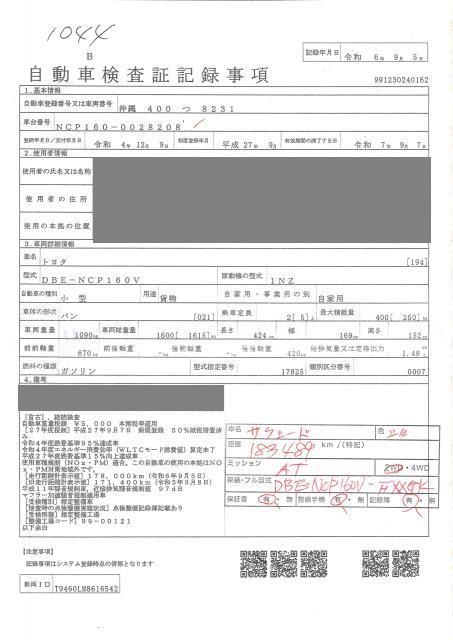 1044
B
記録年月日 令和 6年 9月 5日
自動車検査証記録事項
991230240162
1.基本情報
自動車登録番号又は車両番号 沖縄 400 つ 8231
車台番号 NCP160-0028208
登録年月日/交付年月日 令和 4年 12月 9日 初度登録年月 平成 27年 9月 有効期間の満了する日 令和 7年 9月 7日
2.使用者情報
使用者の氏名又は名称
使用者の住所
使用の本拠の位置
3.車両詳細情報
車名 トヨタ [194]
型式 DBE-NCP160V 原動機の型式 1NZ
自動車の種別 小型 用途 貨物 自家用・事業用の別 自家用
車体の形状 バン [021] 乗車定員 2[ 5]人 最大積載量 400[ 250]kg
車両重量 1090kg 車両総重量 1600[ 1615]kg 長さ 424cm 幅 169cm 高さ 152cm
前前軸重 670kg 前後軸重 -kg 後前軸重 -kg 後後軸重 420kg 総排気量又は定格出力 1.49L
燃料の種類 ガソリン 型式指定番号 17825 類別区分番号 0007
4.備考
[宮古],継続検査
自動車重量税額 ¥5,000 本則税率適用
[27年度税制]平成27年9月7日 新規登録 50%減税措置済み
令和4年度燃費基準95%達成車
令和4年度エネルギー消費効率(WLTCモード燃費値)算定未了
平成27年度燃費基準15%向上達成車
使用車種規制(NOx・PM)適合,この自動車の使用の本拠はNOx・PM対策地域外です。
[走行距離計表示値]178,000km(令和6年9月5日)
[旧走行距離計表示値]171,400km(令和5年9月8日)
平成11年騒音規制車,近接排気騒音規制値 97dB
マフラー加速騒音規制適用車
[受検種別]指定整備車
[検査時の点検整備実施状況]点検整備記録簿記載あり
[受検形態]指定整備工場
[整備工場コード]99-00121
以下余白
車名 サクシード 色
距離 183489 km/(特記)
ミッション AT 2WD・4WD
架装・フル型式 DBE-NCP160V-
保証書 有・無 整備手帳 有・無 記録簿 有・無
[注意事項]
記録事項はシステム登録時点の情報となります
車両ID T9460LM8616542